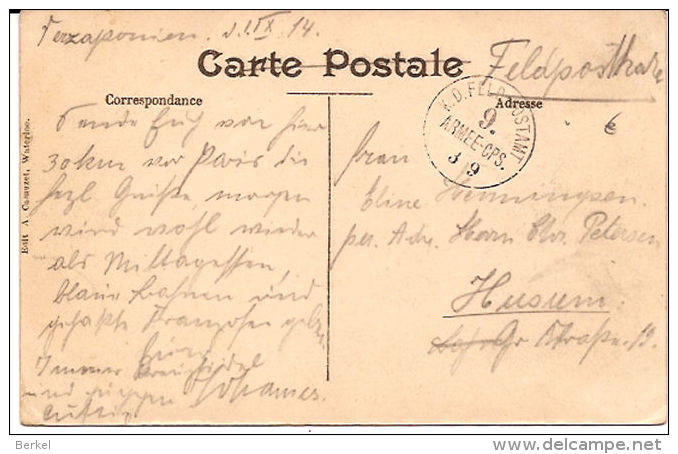 14.
Carte Postale
Feldpostkarte
Correspondance
Adresse
K.D. FELDPOSTAMT
9.
ARMEE-CPS.
3 9
Edit A. Camuzet, Waterloo.
Sende Euch von hier
30 km vor Paris die
hzl. Grüße, morgen
wird wohl wieder
als Mittagessen,
blaue Bohnen und
gehackte Franzosen
Immer
und
Johannes.
Frau
Henningsen
per. Adr. Herrn Chr. Petersen
Husum.
Gr Straße. 19.
Berkel
delcampe.net